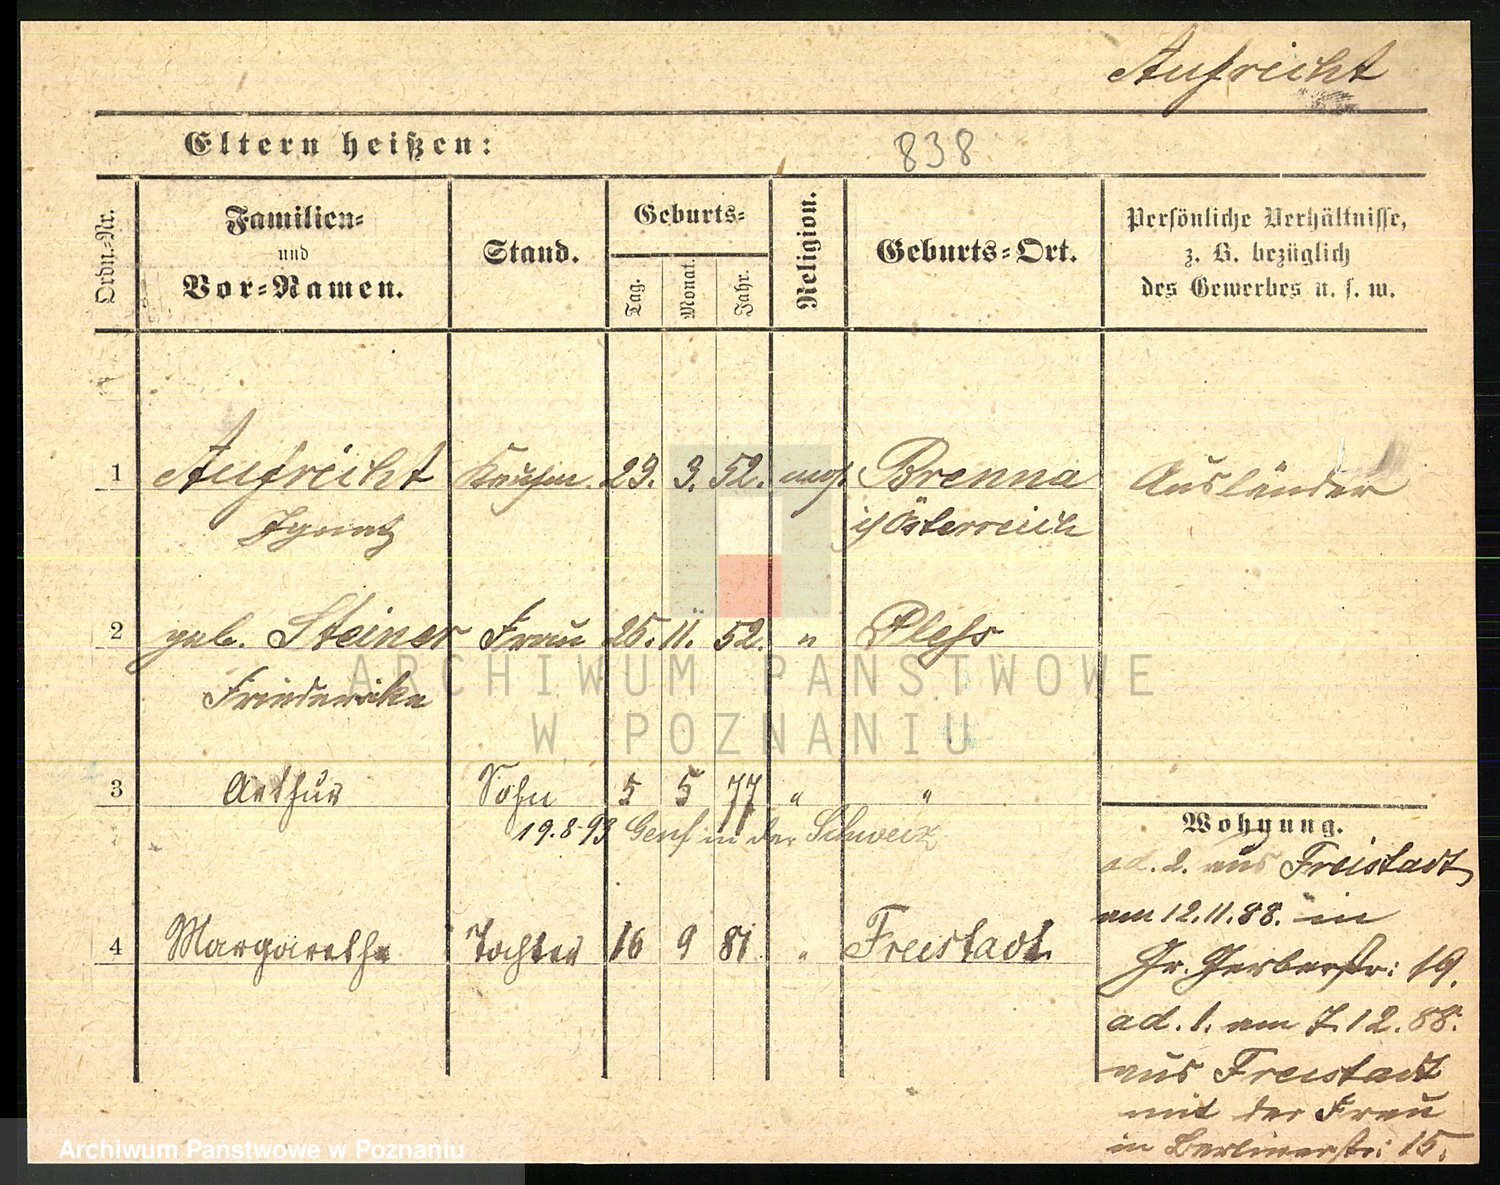 Aufricht
Eltern heißen:
838
Ordn-Nr.
Familien-
und
Vor-Namen.
Stand.
Geburts-
Tag.
Monat.
Jahr.
Religion.
Geburts-Ort.
Persönliche Verhältnisse,
z. B. bezüglich
des Gewerbes u. s. w.
1 Aufricht Kaufm. 23. 3. 52. mos. Brenna Ausländer
Ignatz i/Österreich
2 geb. Steiner Frau 25. 11. 52. " Pless
Friederike
3 Arthur Sohn 5 5 77 " "
19.8.93 Genf in der Schweiz
4 Margarethe Tochter 16 9 81 " Freistadt
Wohnung.
ad. 2. aus Freistadt
am 12.11.88. in
Gr. Gerberstr: 19.
ad. 1. am 7.12.88.
aus Freistadt
mit der Frau
in Berlinerstr: 15.
ARCHIWUM PAŃSTWOWE
W POZNANIU
Archiwum Państwowe w Poznaniu